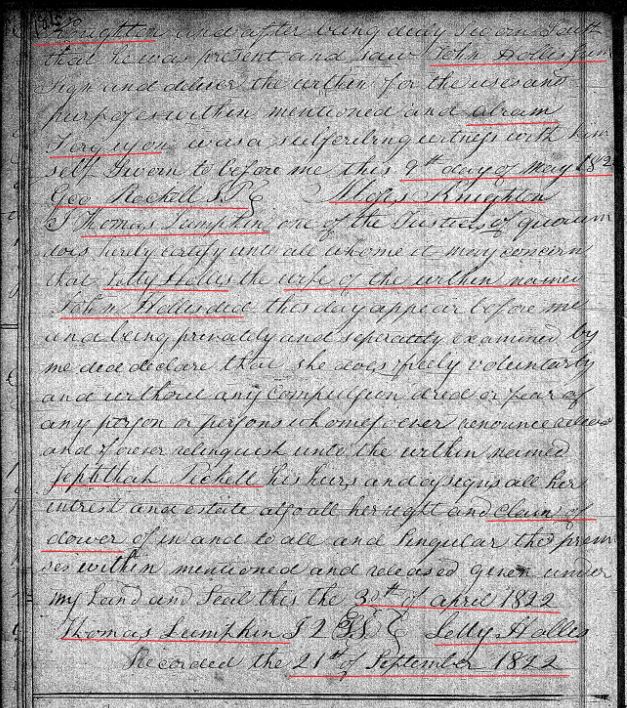 Knighton and after being duly Sworn Saith
that he was present and saw John Hollis Jun
sign and deliver the within for the uses and
purposes within mentioned and Abram
was a subscribing witness with him
self Sworn to before me this 9th day of May 182
Geo Rochell J.P. Moses Knighton
I Thomas Lumpkin one of the Justices of quorum
does hereby certify unto all whome it may concern
that Letty Hollis the wife of the within named
John Hollis did this day appear before me
and being privately and seperately examined by
me did declare that she does freely voluntarly
and without any compulsion dred or fear of
any person or persons whomesoever renounce
and forever relinquish unto the within named
Jephthah Pickett his heirs and assigns all her
intrest and estate also all her right and claim of
dower of in and to all and Singular the prem
ses within mentioned and released given under
my Hand and Seal this the 30th of April 1822
Thomas Lumpkin J Q Letty Hollis
Recorded the 21st of September 1822